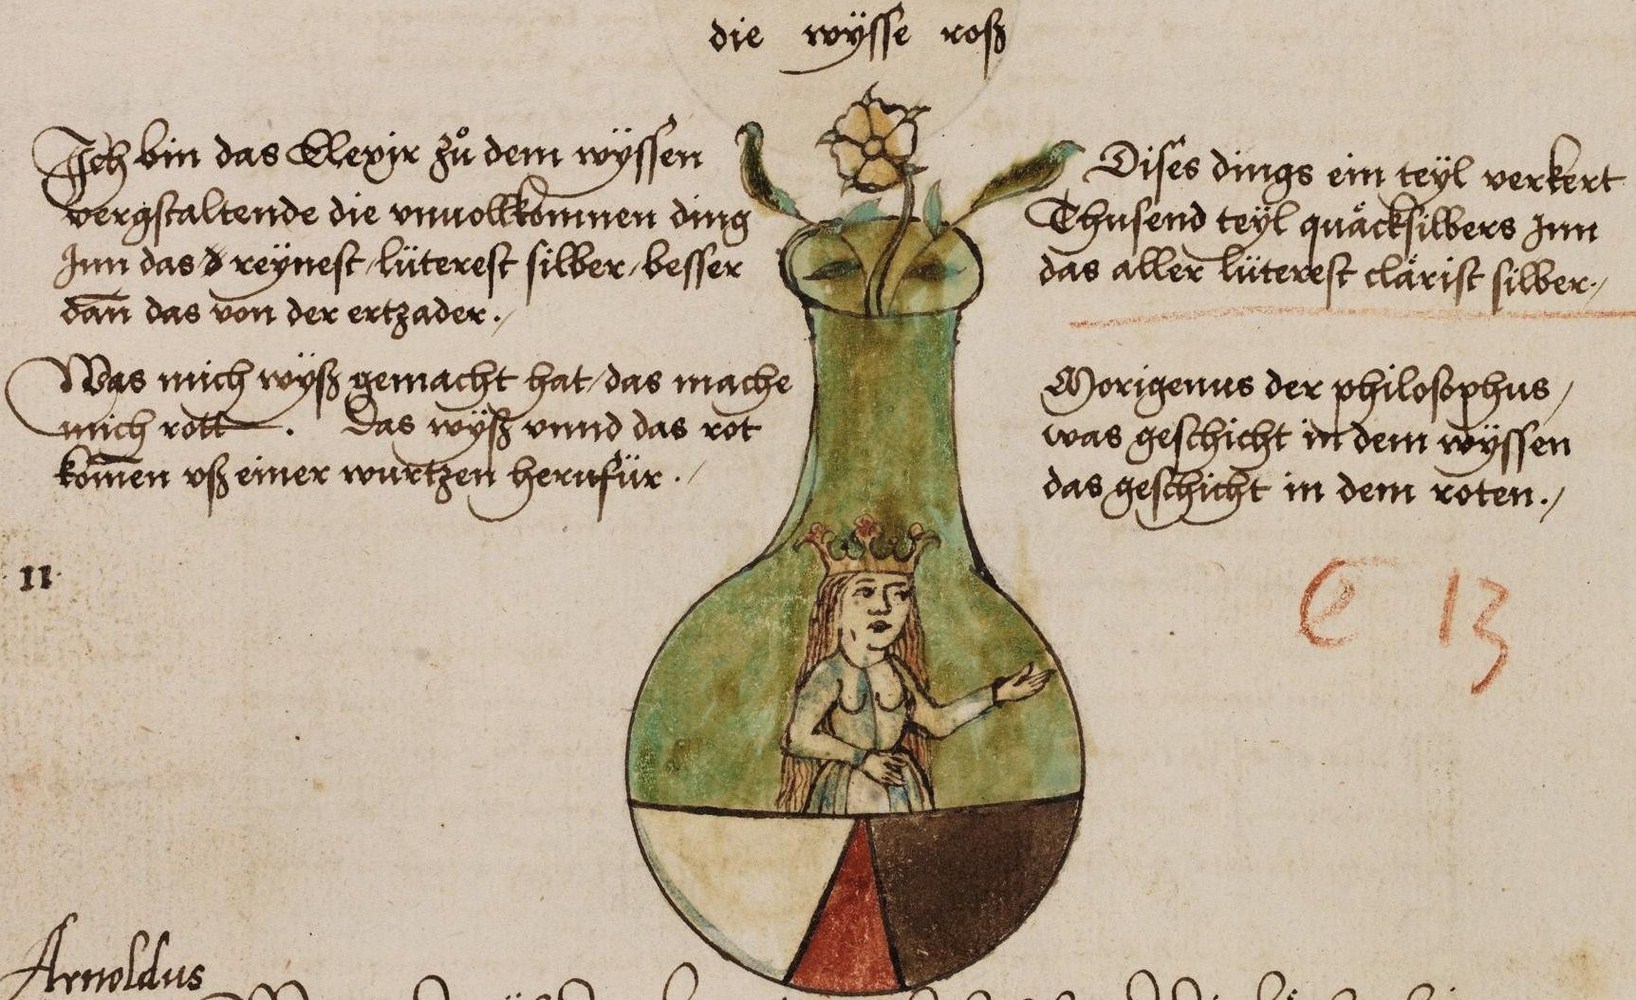 die wÿsse roß
Ich bin das Elexir zů dem wÿssen
vergstaltende die vnuolkomnen ding
Inn das reÿnest, lüterest silber, besser
dan̅ das von der ertzader.
Was mich wÿß gemacht hat, das mache
mich rott. Das wÿß vnnd das rot
kom̅en vß einer wurtzen hernfür.
11
Arnoldus
Dises dings ein teÿl verkert
Thusend teÿl quäcksilbers Inn
das aller lüterest clärist silber.
Morigenus der philosophus,
was geschicht in dem wÿssen
das geschicht in dem roten.
C 13